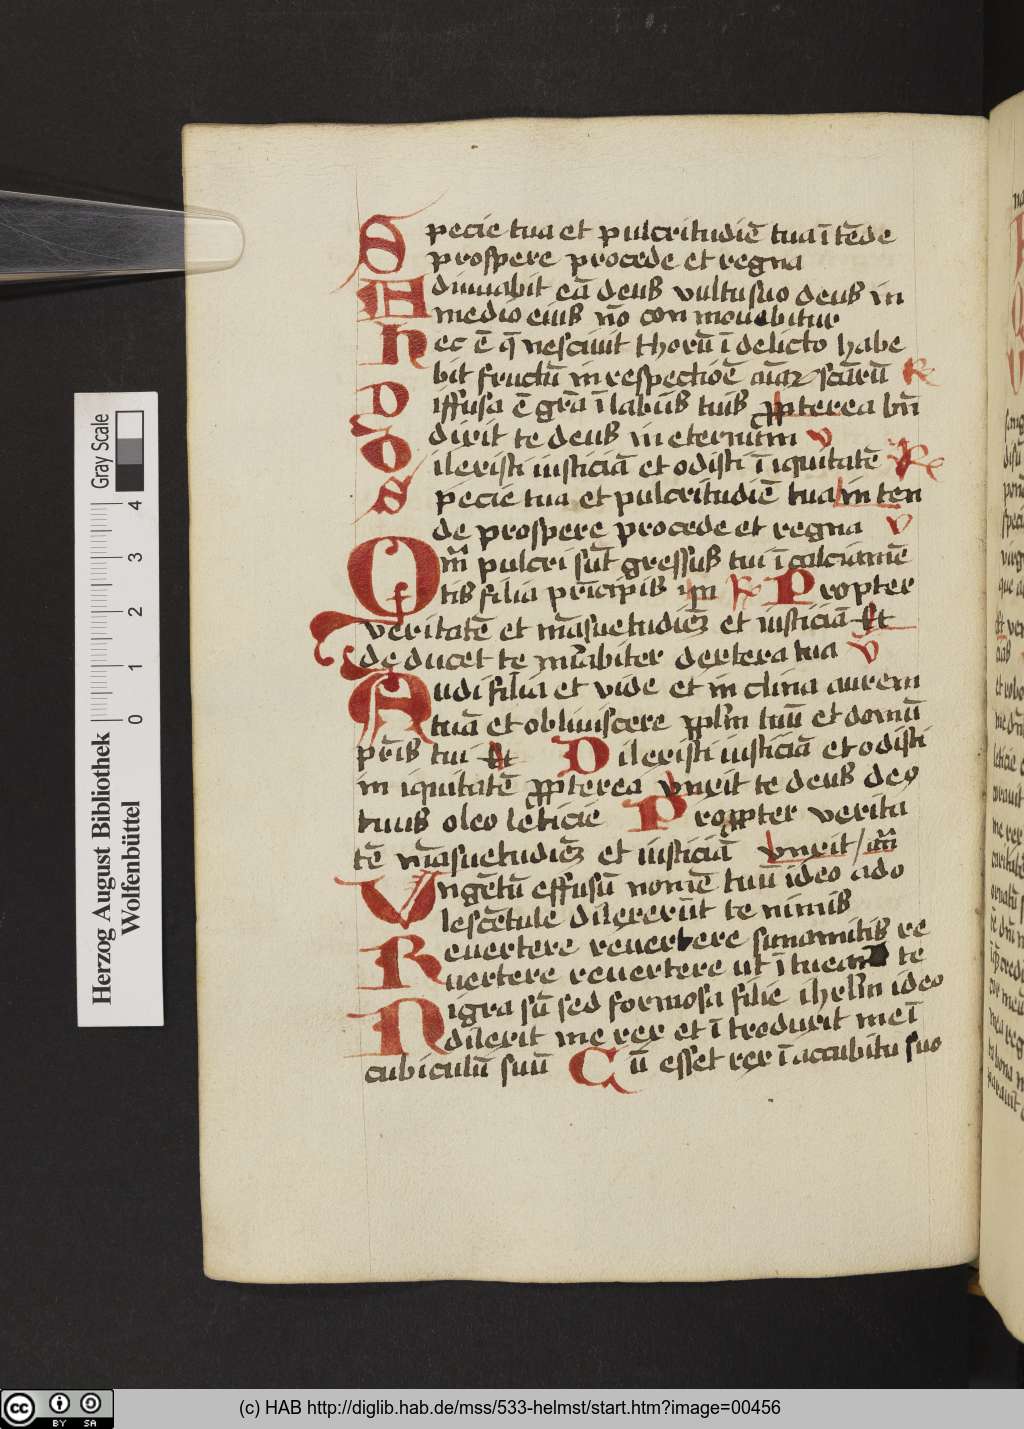 Specie tua et pulcritudiē tua ī tēde
prospere procede et regna
Adiuuabit eā deus vultu suo deus in
medio eius nō conmouebitur
Hec ē q̄ nesciuit thorū ī delicto habe
bit fructū in respectiōe aīaꝝ scārū R
Diffusa ē grā ī labiis tuis ꝓpterea bn̄
dixit te deus in eternum v
Dilexisti iusticiā et odisti ī iquitatē Re
Specie tua et pulcritudiē tua in ten
de prospere procede et regna v
Qm̄ pulcri sūt gressus tui ī calciamē
tis filia prīcipis R Propter
veritatē et māsuetudiēꝫ et iusticiā Et
deducet te mīrabiter dextera tua v
Audi filia et vide et inclina aurem
tuā et obliuiscere pplm̄ tuū et domū
pr̄is tui Et Dilexisti iusticiā et odisti
in iquitatē ꝓpterea vnxit te deus deꝯ
tuus oleo leticie Propter verita
tē māsuetudiēꝫ et iusticiā vnxit /
Vngētū effusū nomē tuū ideo ado
lescētule dilexerūt te nimis
Reuertere reuertere sunamitis re
uertere reuertere ut ī tueam te
Nigra sū sed formosa filie ihrlm̄ ideo
dilexit me rex et ī troduxit me ī
cubiculū suū Cū esset rex ī accubitu suo
Gray Scale
0 1 2 3 4
Herzog August Bibliothek
Wolfenbüttel
cc BY SA
(c) HAB http://diglib.hab.de/mss/533-helmst/start.htm?image=00456